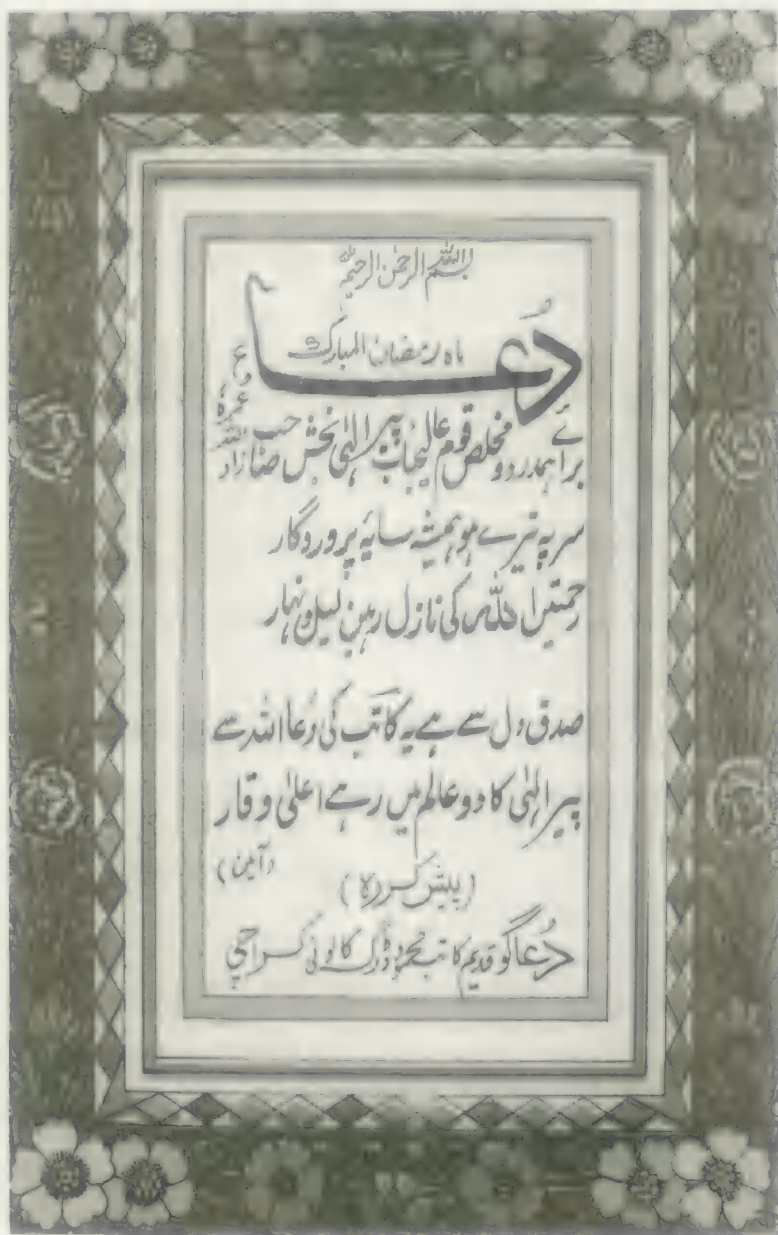 بسم اللہ الرحمٰن الرحیم
دُعا
ماہ رمضان المبارک
برائے ہمدرد و مخلص قوم عالیجناب پیر الٰہی بخش صاحب زاد
سر پہ تیرے ہو ہمیشہ سایۂ پروردگار
رحمتیں اللہ کی نازل رہیں لیل و نہار
صدق دل سے ہے یہ کاتب کی دُعا اللہ سے
پیر الٰہی کا دو عالم میں رہے اعلیٰ وقار
(آمین)
(پیش کردہ)
دُعاگو قدیم کاتب کالونی کراچی